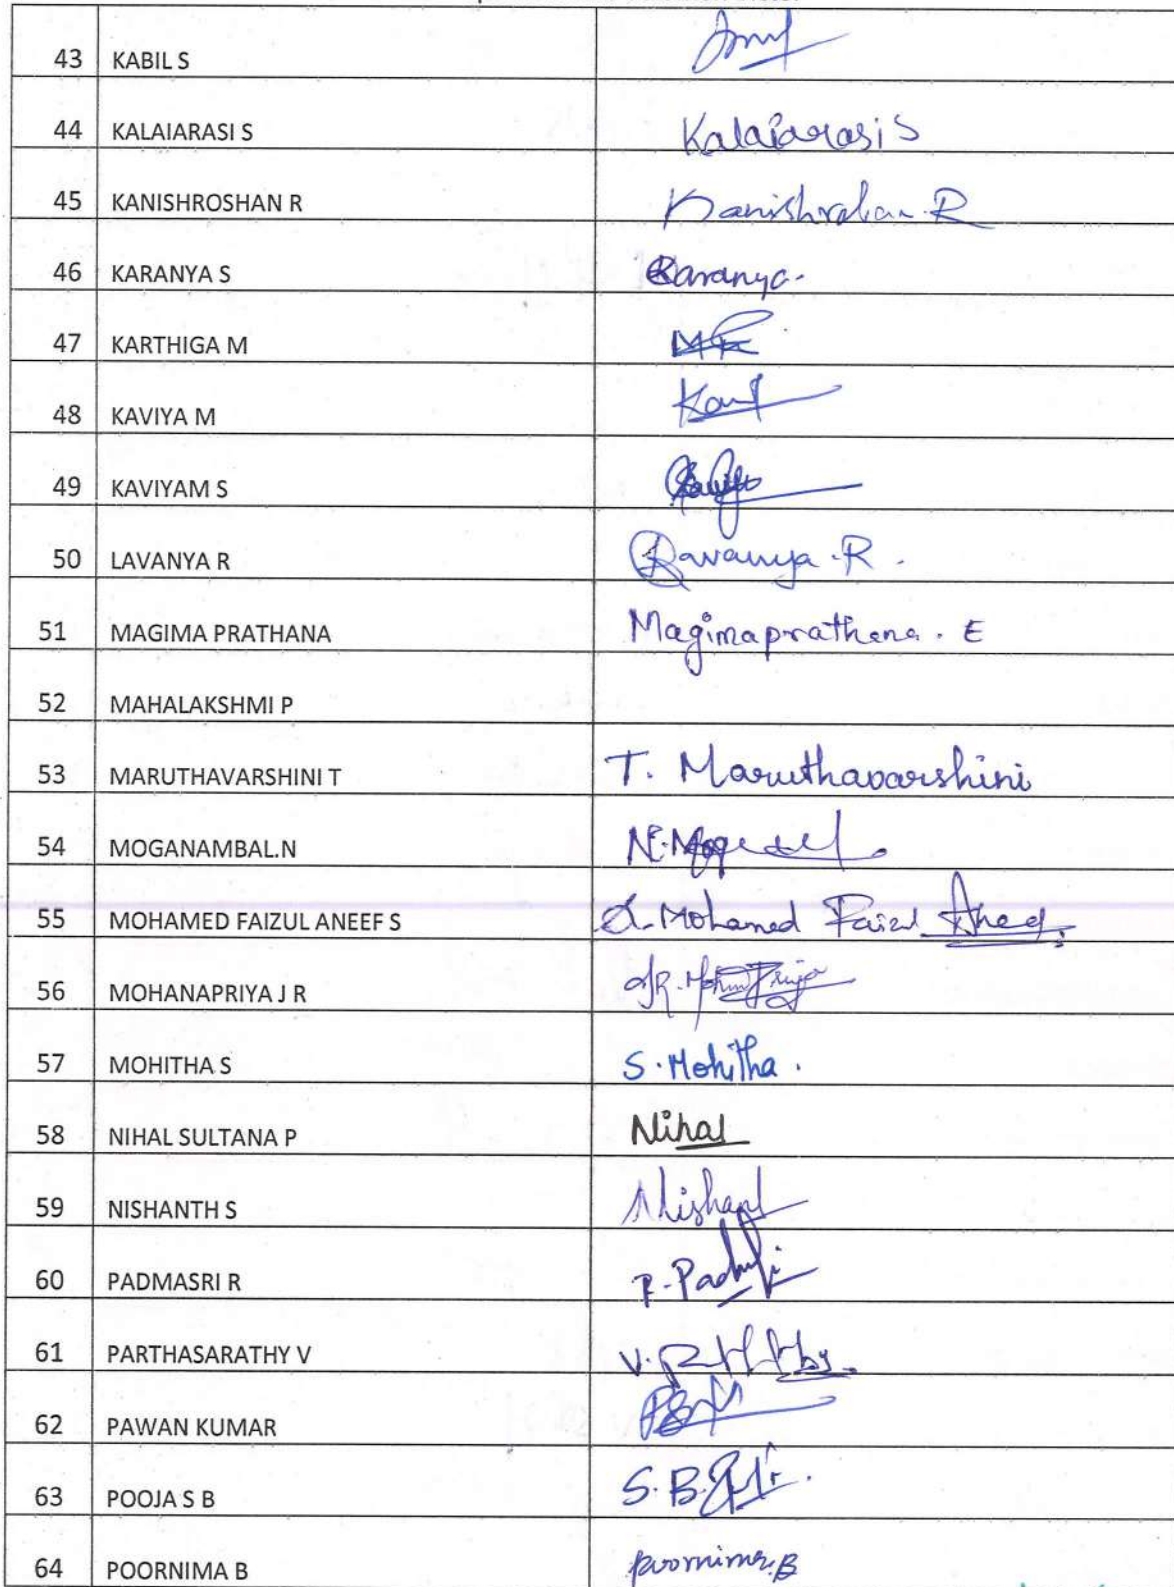 43 KABIL S
44 KALAIARASI S Kalaiarasi S
45 KANISHROSHAN R Kanishroshan R
46 KARANYA S Karanya.
47 KARTHIGA M
48 KAVIYA M
49 KAVIYAM S
50 LAVANYA R Lavanya . R .
51 MAGIMA PRATHANA Magimaprathana . E
52 MAHALAKSHMI P
53 MARUTHAVARSHINI T T. Maruthavarshini
54 MOGANAMBAL.N
55 MOHAMED FAIZUL ANEEF S Mohamed Faizul
56 MOHANAPRIYA J R
57 MOHITHA S S. Mohitha .
58 NIHAL SULTANA P Nihal
59 NISHANTH S
60 PADMASRI R
61 PARTHASARATHY V V.
62 PAWAN KUMAR
63 POOJA S B S. B.
64 POORNIMA B poornima.B